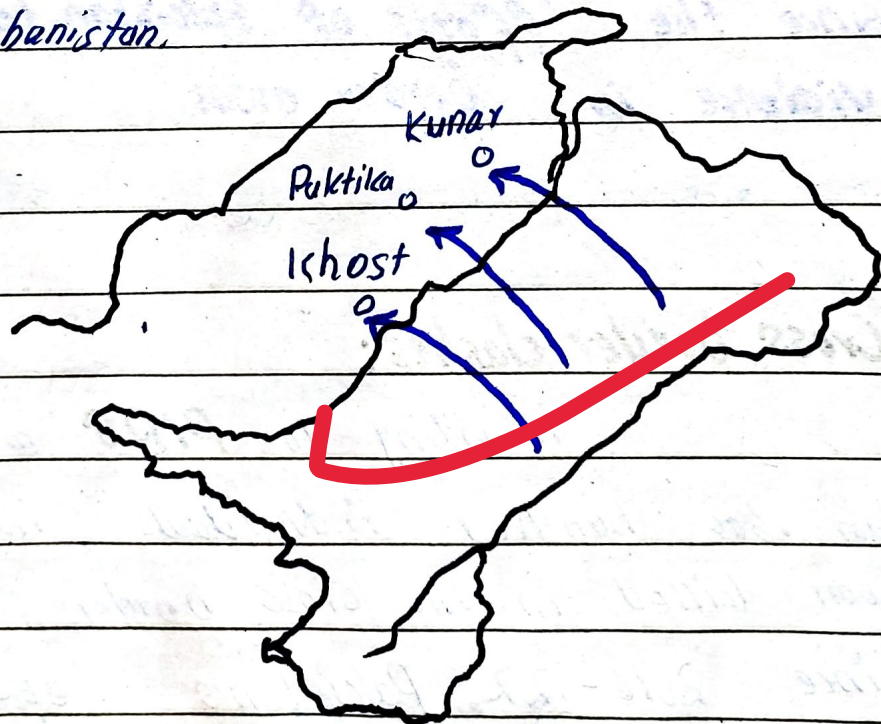 banistan.
Kunar
Paktika
Khost